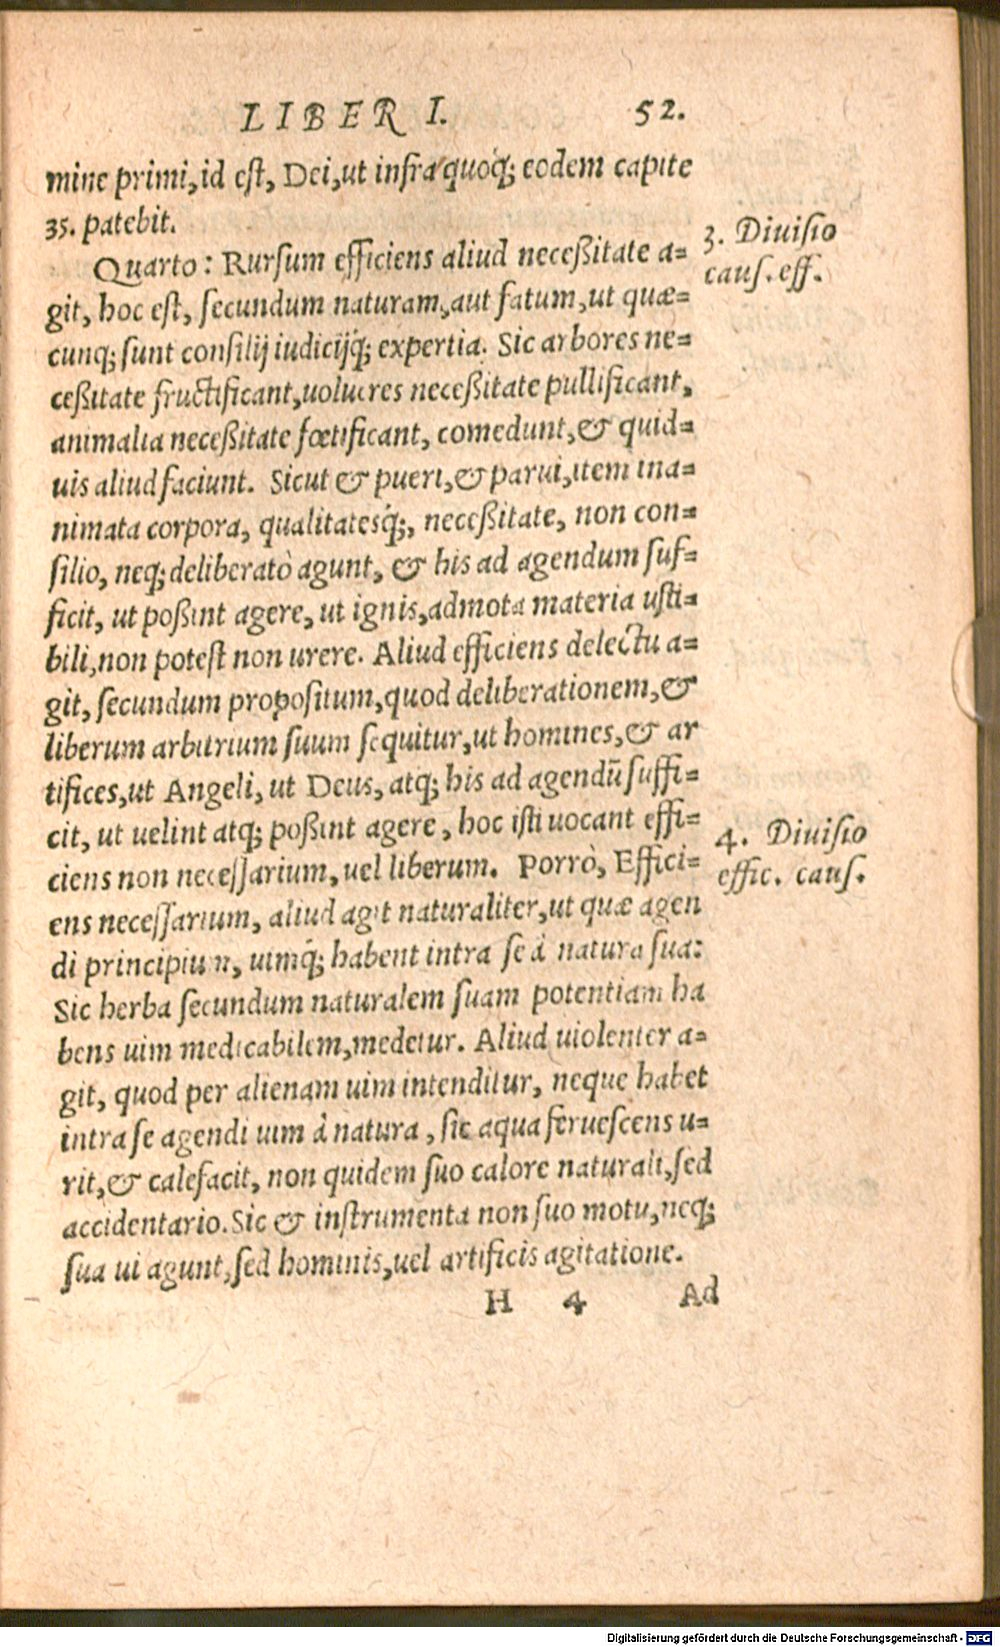 LIBER I. 52.
mine primi, id est, Dei, ut infra quoq́; eodem capite
35. patebit.
Quarto: Rursum efficiens aliud neceßitate a=
git, hoc est, secundum naturam, aut fatum, ut quæ=
cunq; sunt consilij iudicijq́; expertia. Sic arbores ne=
ceßitate fructificant, uolucres neceßitate pullificant,
animalia neceßitate fœtificant, comedunt, & quid=
uis aliud faciunt. Sicut & pueri, & parui, item ina=
nimata corpora, qualitatesq́;, neceßitate, non con=
silio, neq; deliberatò agunt, & his ad agendum suf=
ficit, ut poßint agere, ut ignis, admota materia usti=
bili, non potest non urere. Aliud efficiens delectu a=
git, secundum propositum, quod deliberationem, &
liberum arbitrium suum sequitur, ut homines, & ar
tifices, ut Angeli, ut Deus, atq; his ad agendũ suffi=
cit, ut uelint atq; poßint agere, hoc isti uocant effi=
ciens non necessarium, uel liberum. Porrò, Effici=
ens necessarium, aliud agit naturaliter, ut quæ agen
di principium, uimq́; habent intra se à natura sua:
Sic herba secundum naturalem suam potentiam ha
bens uim medicabilem, medetur. Aliud uiolenter a=
git, quod per alienam uim intenditur, neque habet
intra se agendi uim à natura, sic aqua feruescens u=
rit, & calefacit, non quidem suo calore naturali, sed
accidentario. Sic & instrumenta non suo motu, neq;
sua ui agunt, sed hominis, uel artificis agitatione.
H 4 Ad
3. Diuisio
caus. eff.
4. Diuisio
effic. caus.
Digitalisierung gefördert durch die Deutsche Forschungsgemeinschaft - DFG